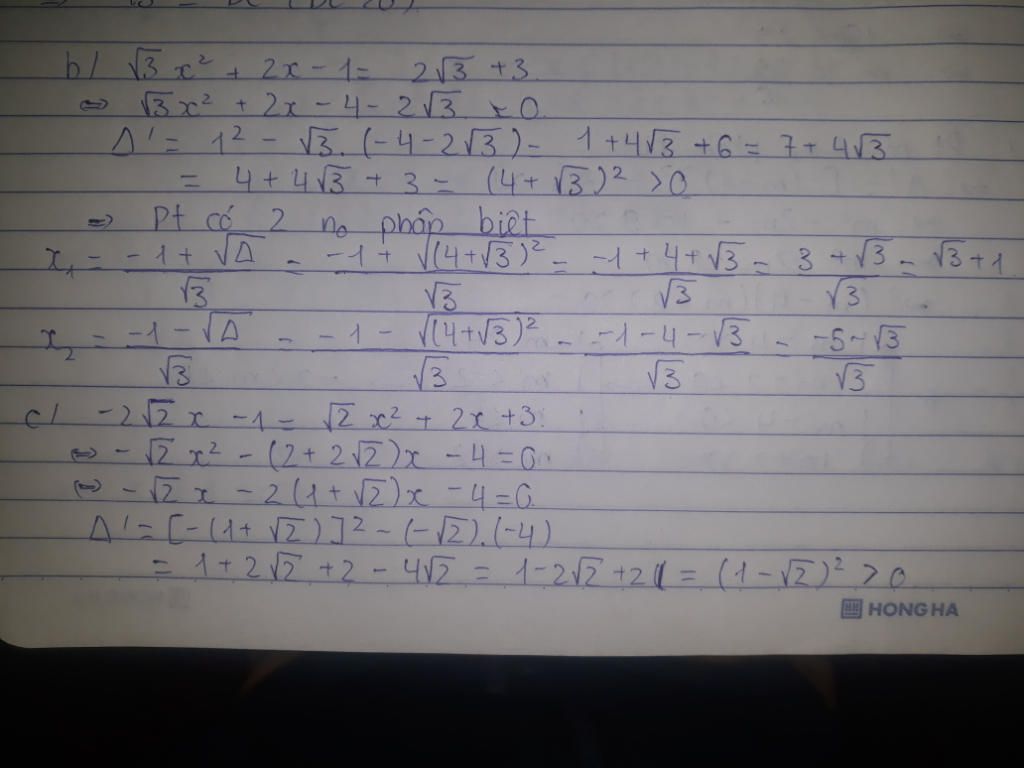 b/ √3 x² + 2x - 1 = 2√3 + 3
⇔ √3x² + 2x - 4 - 2√3 = 0
Δ' = 1² - √3.(-4-2√3) = 1+4√3 +6 = 7+4√3
= 4+4√3 + 3 = (4+√3)² >0
⇒ Pt có 2 no phân biệt
x₁ = (-1+√Δ)/√3 = (-1+√((4+√3)²))/√3 = (-1+4+√3)/√3 = (3+√3)/√3 = √3+1
x₂ = (-1-√Δ)/√3 = (-1-√((4+√3)²))/√3 = (-1-4-√3)/√3 = (-5-√3)/√3
c/ -2√2 x - 1 = √2 x² + 2x +3
⇔ -√2 x² - (2+2√2)x - 4 = 0
⇔ -√2 x - 2(1+√2)x - 4 = 0
Δ' = [-(1+√2)]² - (-√2).(-4)
= 1+2√2 +2 - 4√2 = 1-2√2 +2 = (1-√2)² >0
HONG HA